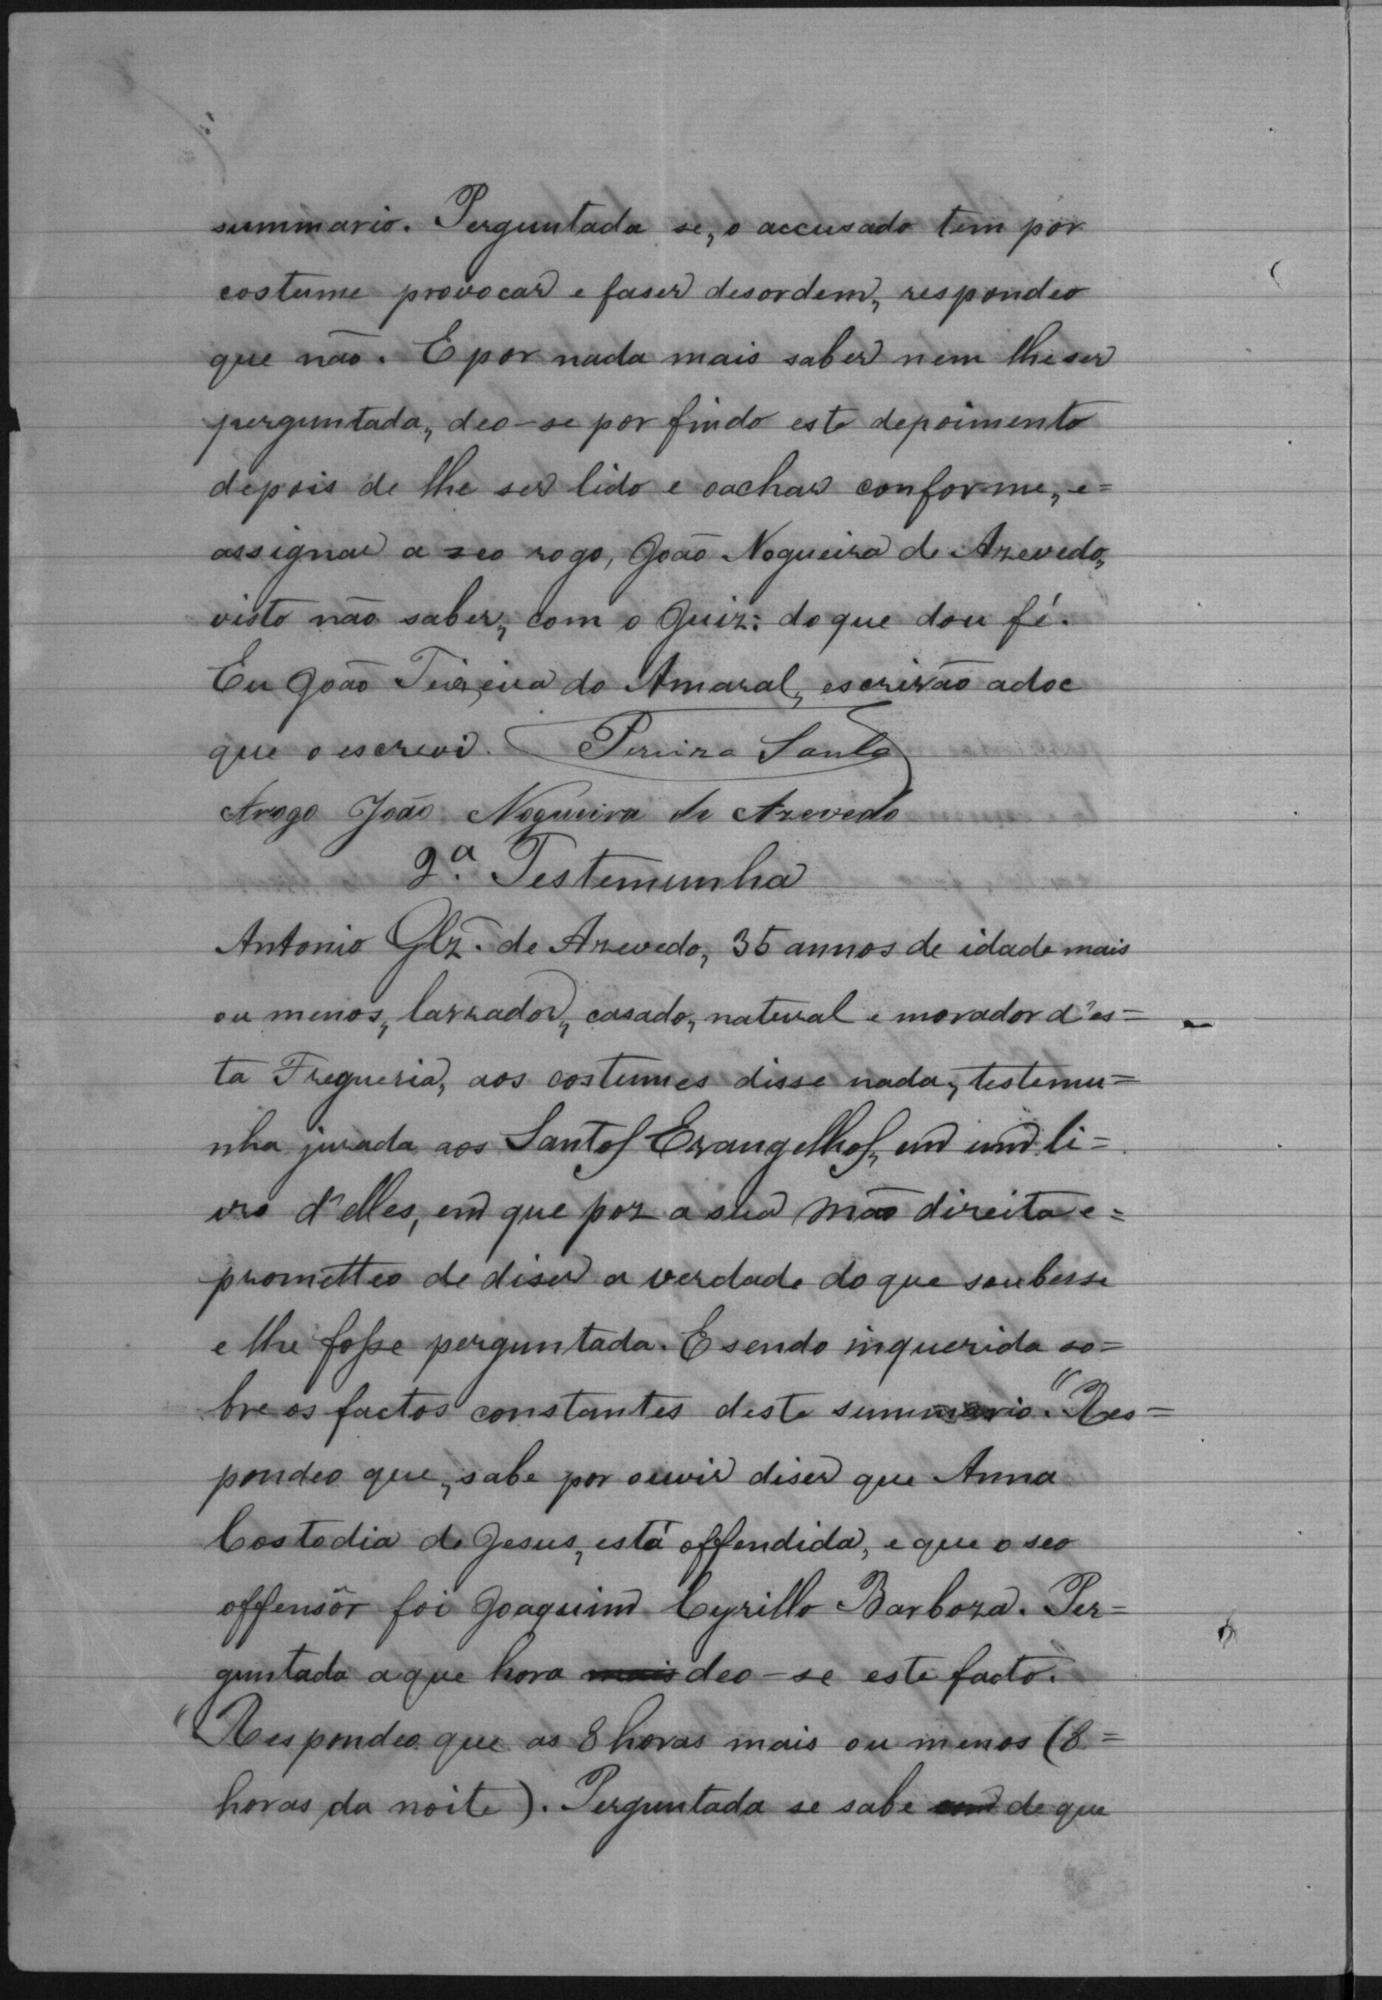 summario. Perguntada se, o accusado tem por
costume provocar e faser desordem, respondeo
que não. E por nada mais saber nem lhe ser
perguntada, deo-se por findo este depoimento
depois de lhe ser lido e oachar conforme, e=
assignar a seo rogo, João Nogueira de Azevedo,
visto não saber, com o Juiz: do que dou fé.
Eu João Teixeira do Amaral, escrivão adoc
que o escrevi. Pereira
Arogo João Nogueira de Azevedo
2.ª Testemunha
Antonio Glz. de Azevedo, 35 annos de idade mais
ou menos, lavrador, casado, natural e morador d'es=
ta Fregueria, aos costumes disse nada, testemu=
nha jurada aos Santos Evangelhos, em um li=
vro d'elles, em que poz a sua mão direita e=
prometteo de diser a verdade do que soubesse
e lhe fosse perguntada. E sendo inquerida so=
bre os factos constantes deste summario. "Res=
pondeo que, sabe por ouvir diser que Anna
Costodia de Jesus, está offendida, e que o seo
offensôr foi Joaquim Cyrillo Barboza. Per=
guntada a que hora mais deo-se este facto.
"Respondeo que as 8 horas mais ou menos (8=
horas da noite). Perguntada se sabe com de que